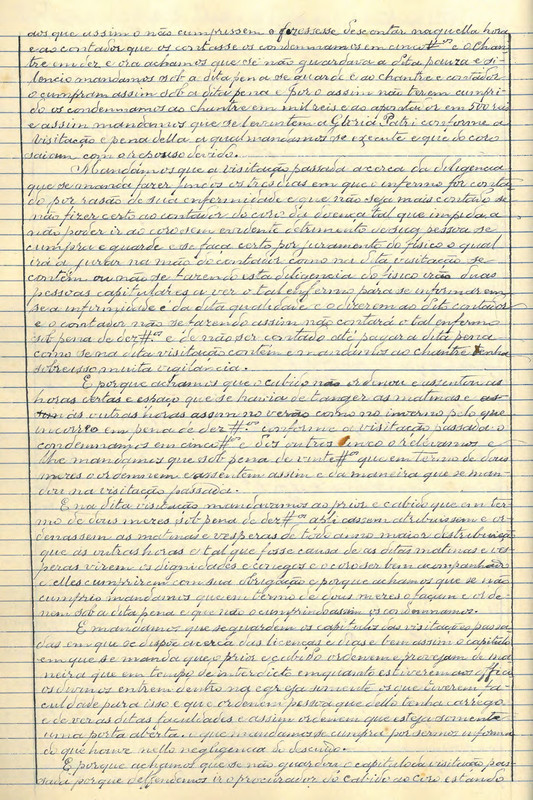 aos que assim o não cumprissem o fizessesse descontar naquella hora
e ao contador que os contasse os condennamos em cinco #os e o Chan-
tre em dez e ora achamos que se não guardava a dita pauza e si-
lencio mandamos sob a dita pena se guarde e ao chantre e contador
o cumpram assim sob a dita pena e por o assim não terem cumpri-
do os condennamos ao chantre em mil reis e ao apontador em 500 reis
e assim mandamos que se levantem a Gloria Patri conforme a
visitação e pena della a qual mandamos se execute e que do coro
saiam com o repouso devido.
Mandamos que a visitação passada acerca da diligencia
que se manda fazer findos os tres dias em que o infermo for conta-
do por rasão de sua enfermidade e que não seja mais contado se
não fizer certo ao contador do coro da doença tal que impida a
não poder ir ao coro sem evidente detrimento de sua pessoa se
cumpra e guarde e se faça certo por juramento do fisico o qual
irá a jurar na mão do contador como na dita visitação se
contém ou não se fazendo esta diligencia do fisico irão duas
pessoas capitulares a ver o tal enfermo para se infirmarem
sua infirmidade e da dita qualidade e o direrem ao dito contador
e o contador não se fazendo assim não contará o tal enfermo
sob pena de dez #os e de não ser contado até pagar a dita pena
como se na dita visitação contém e mandamos ao chantre tenha
sobre isso muita vigilancia.
E porque achamos que o cabido não ordenou e assentou as
horas certas e espaço que se havia de tanger as matinas e as-
sim ás outras horas assim no verão como no inverno pelo que
incorreo em pena de dez #os conforme a visitação passada o
condennamos em cinco #os e dos outros cinco o relevamos e
lhe mandamos que sob pena de vinte #os que em termo de dous
meres ordennem e assentem assim e da maneira que se man-
dou na visitação passada.
E na dita visitação mandavamos ao prior e cabido que em ter-
mo de dous meres sob pena de dez #os aplicassem atribuissem e or-
denassem as matinas e vesperas de todo anno maior destribuição
que ás outras horas e tal que fosse causa de as ditas matinas e ves-
peras virem os dignidades e conegos e o coro ser bem acompanhado
e elles cumprirem com sua obrigação e porque achamos que se não
cumprio mandamos que em termo de dous meres o façam e orde-
nem sob a dita pena e que não o cumprindo assim os condennamos.
E mandamos que se guardem os capitulos das visitações passa-
das em que se dispõe acerca das licenças e dias e bem assim o capitulo
em que se manda que o prior e cabido ordenem e provejam de ma-
neira que em tempo de interdicto emquanto estiverem aos offici-
os divinos entrem dentro na egreja somente os que tiverem fa-
culdade para isso e que ordenem pessoa que dello tenha carrego
e de ver as ditas faculdades e assim ordenem que esteja somente
uma porta aberta, o que mandamos se cumpra por sermos informa-
do que houve nello negligencia do descuido.
E porque achamos que se não guardou o capitulo da visitação pas-
sada porque deffendemos ir o procurador do cabido ao coro estando